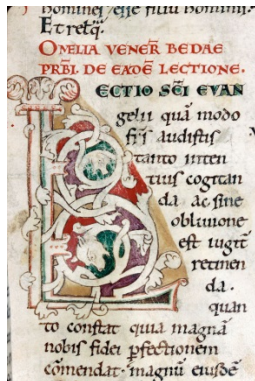 homines, esse filiū hominis.
Et retq̄.
OMELIA VENER̄ BEDAE
PRB̄I. DE EADĒ LECTIONE.
LECTIO SC̄I EVAN
gelii quā modo
fr̄s audistis
tanto inten
tius cogitan
da ac sine
oblivione
est iugit̄
retinen
da.
quan
to constat quia magnā
nobis fidei ꝑfectionem
cōmendat. magnū eiusdē